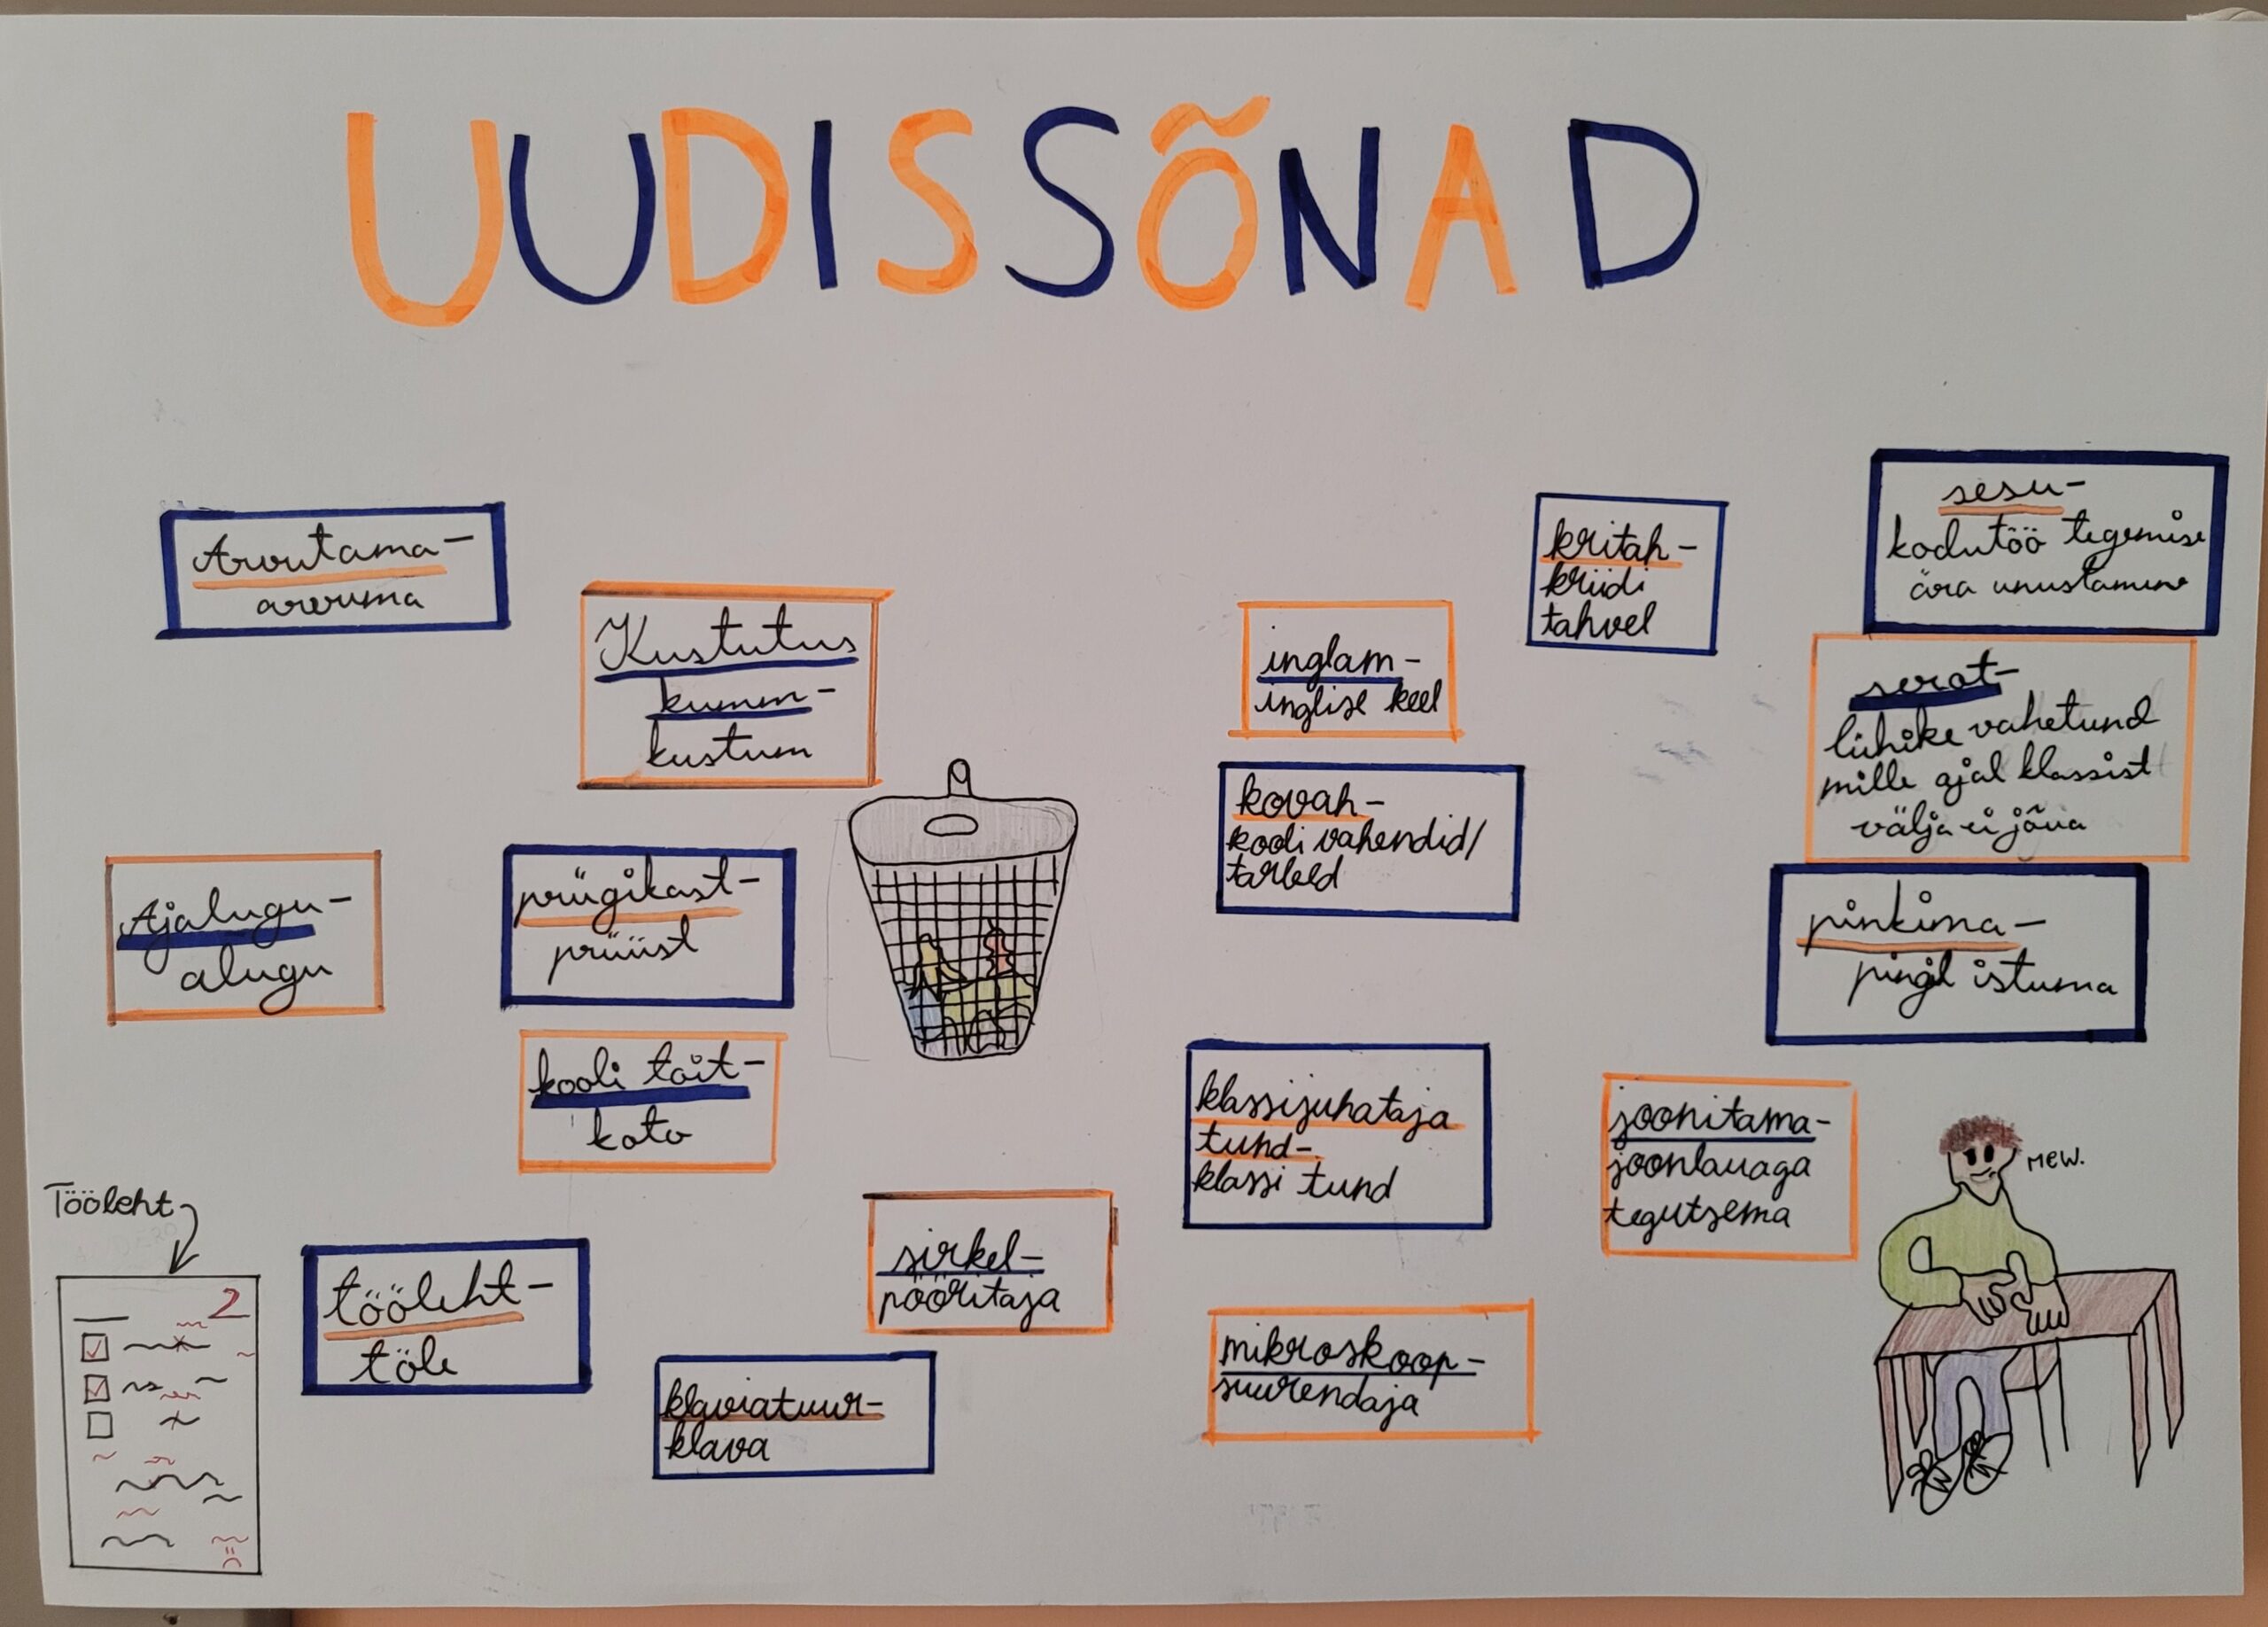 UUDISSÕNAD
Arvutama-
arvuma
Kustutus
kumm-
kustum
inglam-
inglise keel
kritah-
kriidi
tahvel
sesu-
kodutöö tegemise
ära unustamine
serat-
lühike vahetund
mille ajal klassist
välja ei jõua
kovah-
kooli vahendid/
tarbed
Ajalugu-
alugu
prügikast-
prüüst
pinkima-
pingil istuma
kooli toit-
koto
klassijuhataja
tund-
klassi tund
joonitama-
joonlauaga
tegutsema
MEW.
Tööleht
2
tööleht-
töle
sirkel-
pööritaja
klaviatuur-
klava
mikroskoop-
suurendaja